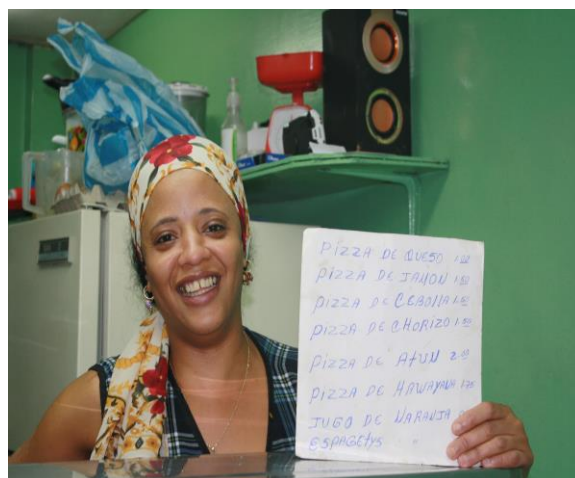 PIZZA DE QUESO
PIZZA DE JAMON
PIZZA DE CEBOLLA
PIZZA DE CHORIZO
PIZZA DE ATUN
PIZZA DE HAWAYANA
JUGO DE NARANJA
ESPAGETYS "